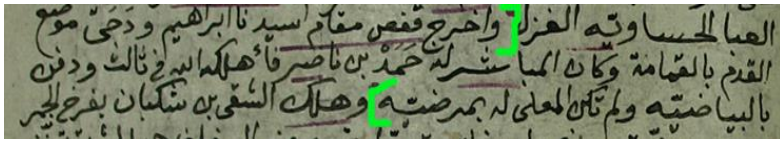 العبا الحساوية الغزل واخرج قفص مقام سيدنا ابراهيم ودحى موضع
القدم بالقمامة وكان المباشر له حمد بن ناصر فأهلكه الله في ثالث ودفن
بالبياضية ولم تكن المعلى له بمرضية وهلك الشقي بن شكبان بفرج الحجر